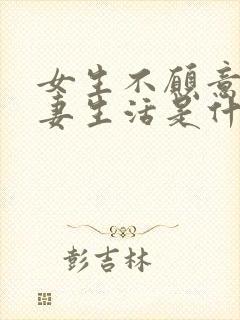 女生不愿意
妻生活是什
彭吉林